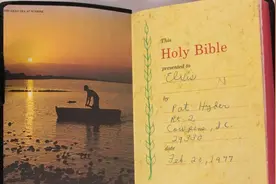 This
Holy Bible
presented to
Elvis
by
Pat Hyder
Rt. 2
Cowpens, S.C.
29330
date
Feb. 21, 1977